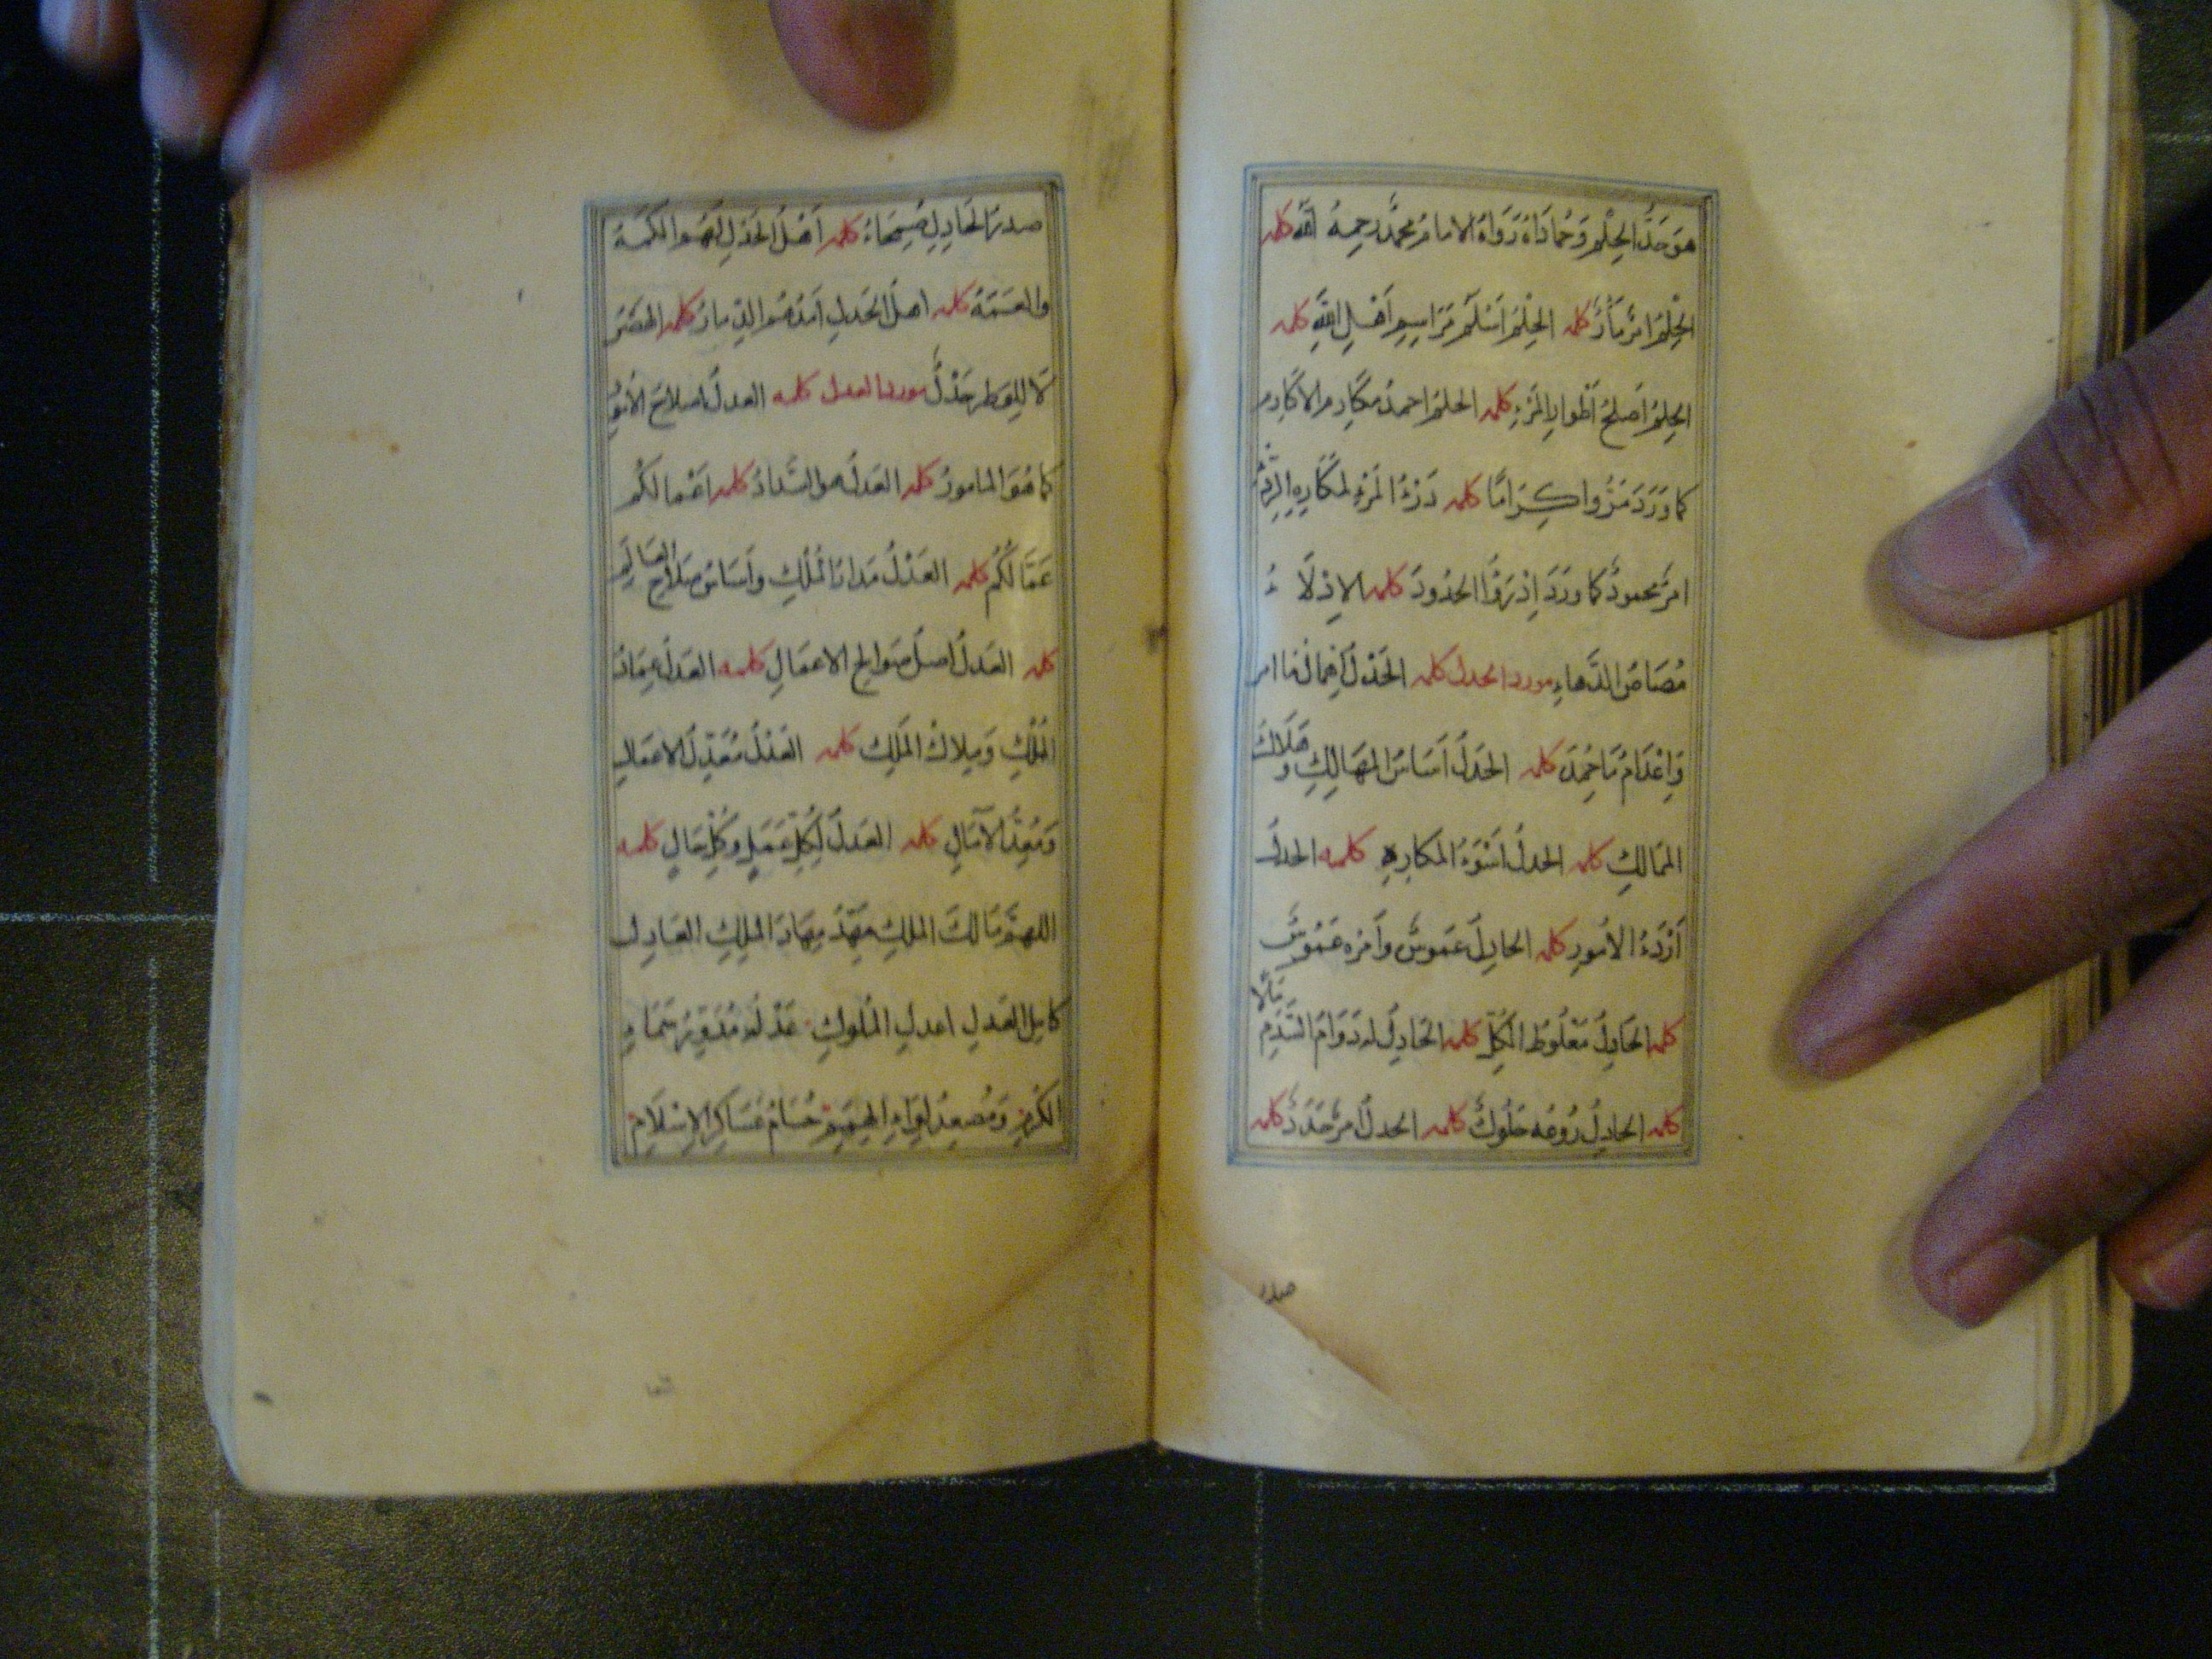 هو حد الحلم وحماداه رواه الامام محمد رحمه الله كلمه
الحلم امر مار كلمه الحلم اسلم مراسم اهل الله كلمه
الحلم اصلح اطوار المرء كلمه الحلم احمد مكارم الاكارم
كما ورد مروا كراما كلمه درء المرء لمكاره
امر محمود كما ورد ادرؤا الحدود كلمه
مصاص الدهاء مورد الحدل كلمه الحدل
واعدام ما حمد كلمه الحدل اساس المهالك وهلاك
الممالك كلمه الحدل اسوء المكاره كلمه الحدل
اردء الامور كلمه الحادل عموس وامره عموس
كلمه الحادل معلوط الكل كلمه الحادل له دوام السدم
كلمه الحادل روعه حلوك كلمه الحدل امر حدد كلمه
صدر
صدر الحادل كلمه اهل الحدل لهم الكمه
والعمه كلمه اهل الحدل امدهم الدمار كلمه
مورد العدل كلمه العدل اصلاح الامور
كما هو المامور كلمه العدل هو السداد كلمه اعمالكم
عمالكم كلمه العدل مدار الملك واساس صلاح العالم
كلمه العدل اصل صوالح الاعمال كلمه العدل عماد
الملك وملاك الملك كلمه العدل معدل الاعمال
ومعد الآمال كلمه العدل لكل عمل وكل حال كلمه
اللهم مالك الملك مهد مهاد الملك العادل
كامل العدل اعدل الملوك عدله
الكرم ومصعد لواء الهمم حسام عساكر الاسلام